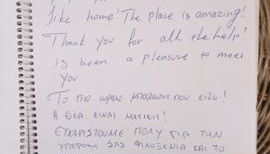 like home! The place is amazing!
Thank you for all the help!
Is been a pleasure to meet
you
Το πιο ωραιο μπαλκονι που ειδα!
Η ΘΕΑ ΕΙΝΑΙ ΜΑΓΙΚΗ!
ΕΥΧΑΡΙΣΤΟΥΜΕ ΠΟΛΥ ΓΙΑ ΤΗΝ
ΥΠΕΡΟΧΗ ΣΑΣ ΦΙΛΟΞΕΝΙΑ ΚΑΙ ΤΟ